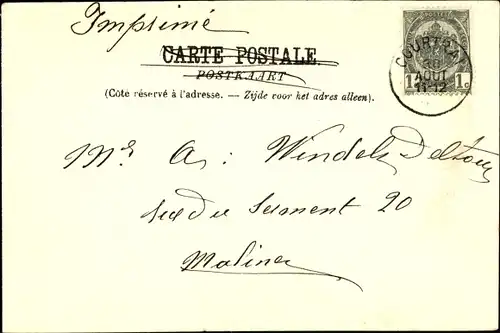 Imprimé
CARTE POSTALE
POSTKAART
(Côté réservé à l'adresse. — Zijde voor het adres alleen).
COURTRAI
28
AOUT
11-12
1 1c
Mr A: Windels Deltour
rue du Serment 20
Malines